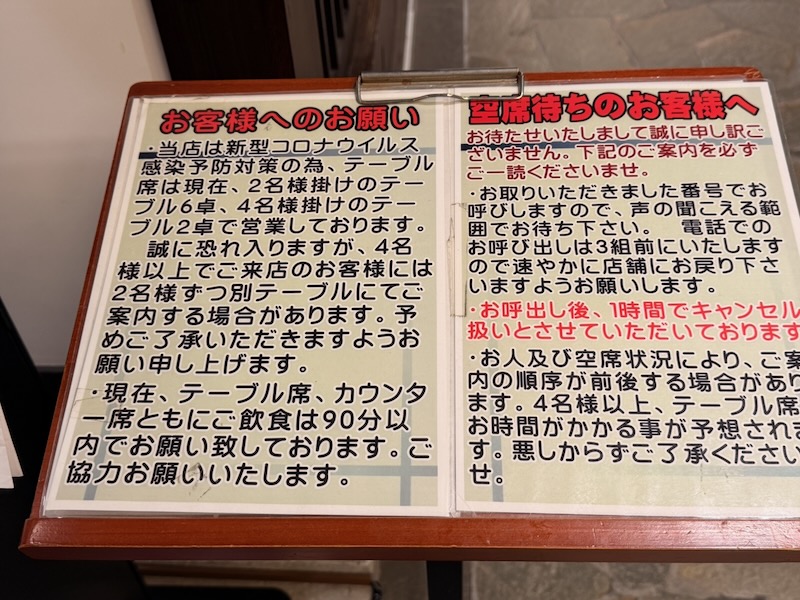 お客様へのお願い
・当店は新型コロナウイルス
感染予防対策の為、テーブル
席は現在、2名様掛けのテー
ブル6卓、4名様掛けのテー
ブル2卓で営業しております。
誠に恐れ入りますが、4名
様以上でご来店のお客様には
2名様ずつ別テーブルにてご
案内する場合があります。予
めご了承いただきますようお
願い申し上げます。
・現在、テーブル席、カウンタ
ー席ともにご飲食は90分以
内でお願い致しております。ご
協力お願いいたします。
空席待ちのお客様へ
お待たせいたしまして誠に申し訳ご
ざいません。下記のご案内を必ず
ご一読くださいませ。
・お取りいただきました番号でお
呼びしますので、声の聞こえる範
囲でお待ち下さい。 電話での
お呼び出しは3組前にいたします
ので速やかに店舗にお戻り下さ
いますようお願いします。
・お呼出し後、1時間でキャンセル
扱いとさせていただいております
・お人及び空席状況により、ご案
内の順序が前後する場合があり
ます。4名様以上、テーブル席
お時間がかかる事が予想されま
す。悪しからずご了承ください
せ。